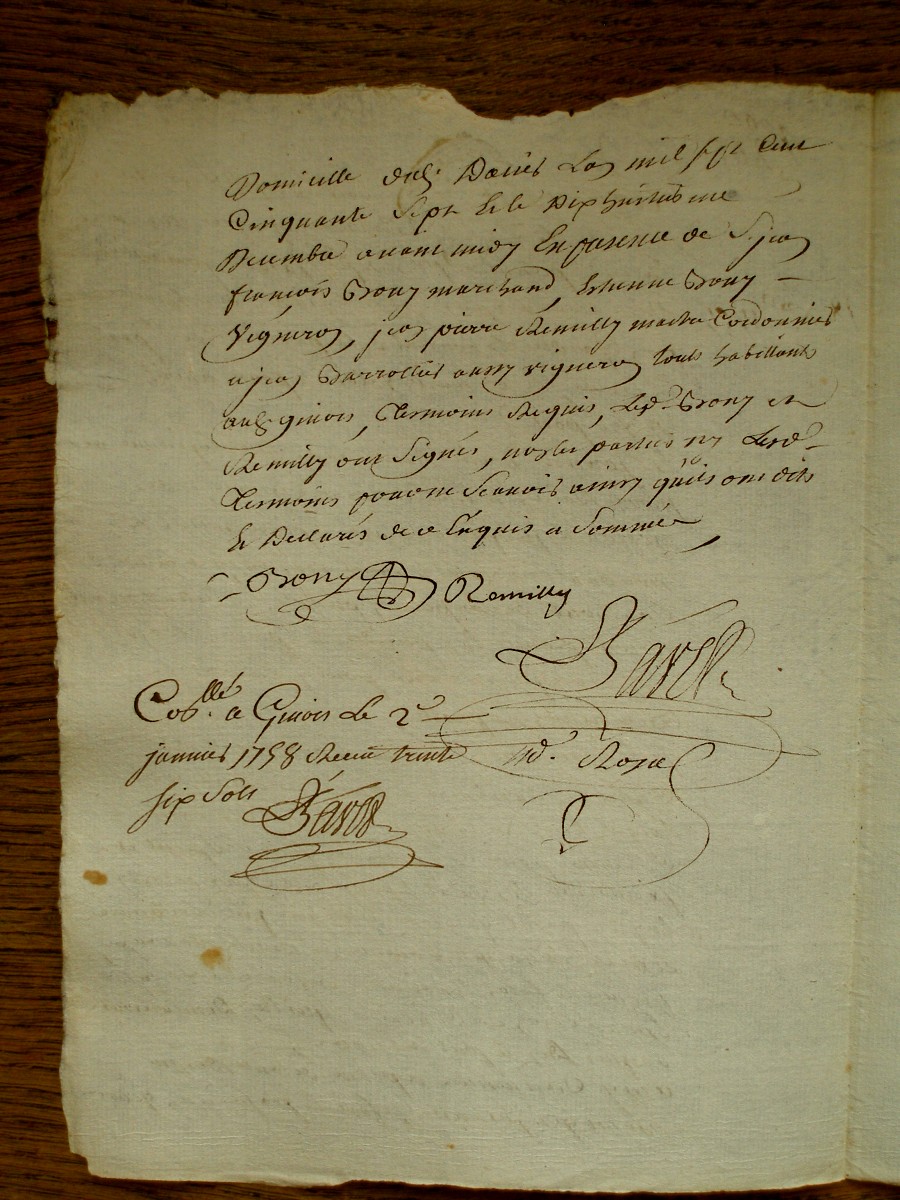 Domicille dud. Daviès Lan mil sept Cent
Cinquante Sept Et le Dix huitieme
Decembre avant midy En presence de S. jean
françois Bony marchand, Etienne Bony
Vigneron, jean pierre Remilly maitre Cordonnier
a jean aussy vigneron touts habittants
aud. givors, Temoins Requis, Led. Bony et
Remilly ont Signés, non les parties ny Lesd.
Temoins pour ne Scavoir ainsy quils ont dits
Et Declarés de ce Enquis et Sommés,
Bony Remilly
Barel
Coll.llé a Givors Le 2e
janvier 1758 Receu trente
six Sols
Barel
n.d. Royal